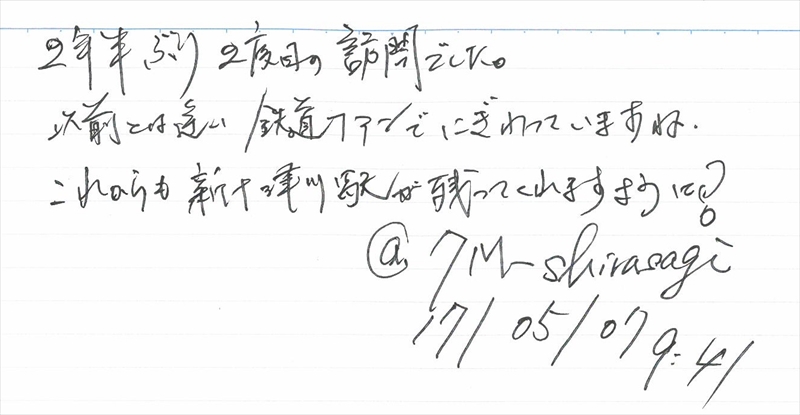 2年半ぶり 2度目の訪問でした。
以前とは違い 鉄道ファンでにぎわっていますね.
これからも 新十津川駅が残ってくれますように!
@ shirasagi
17/05/07 9:41